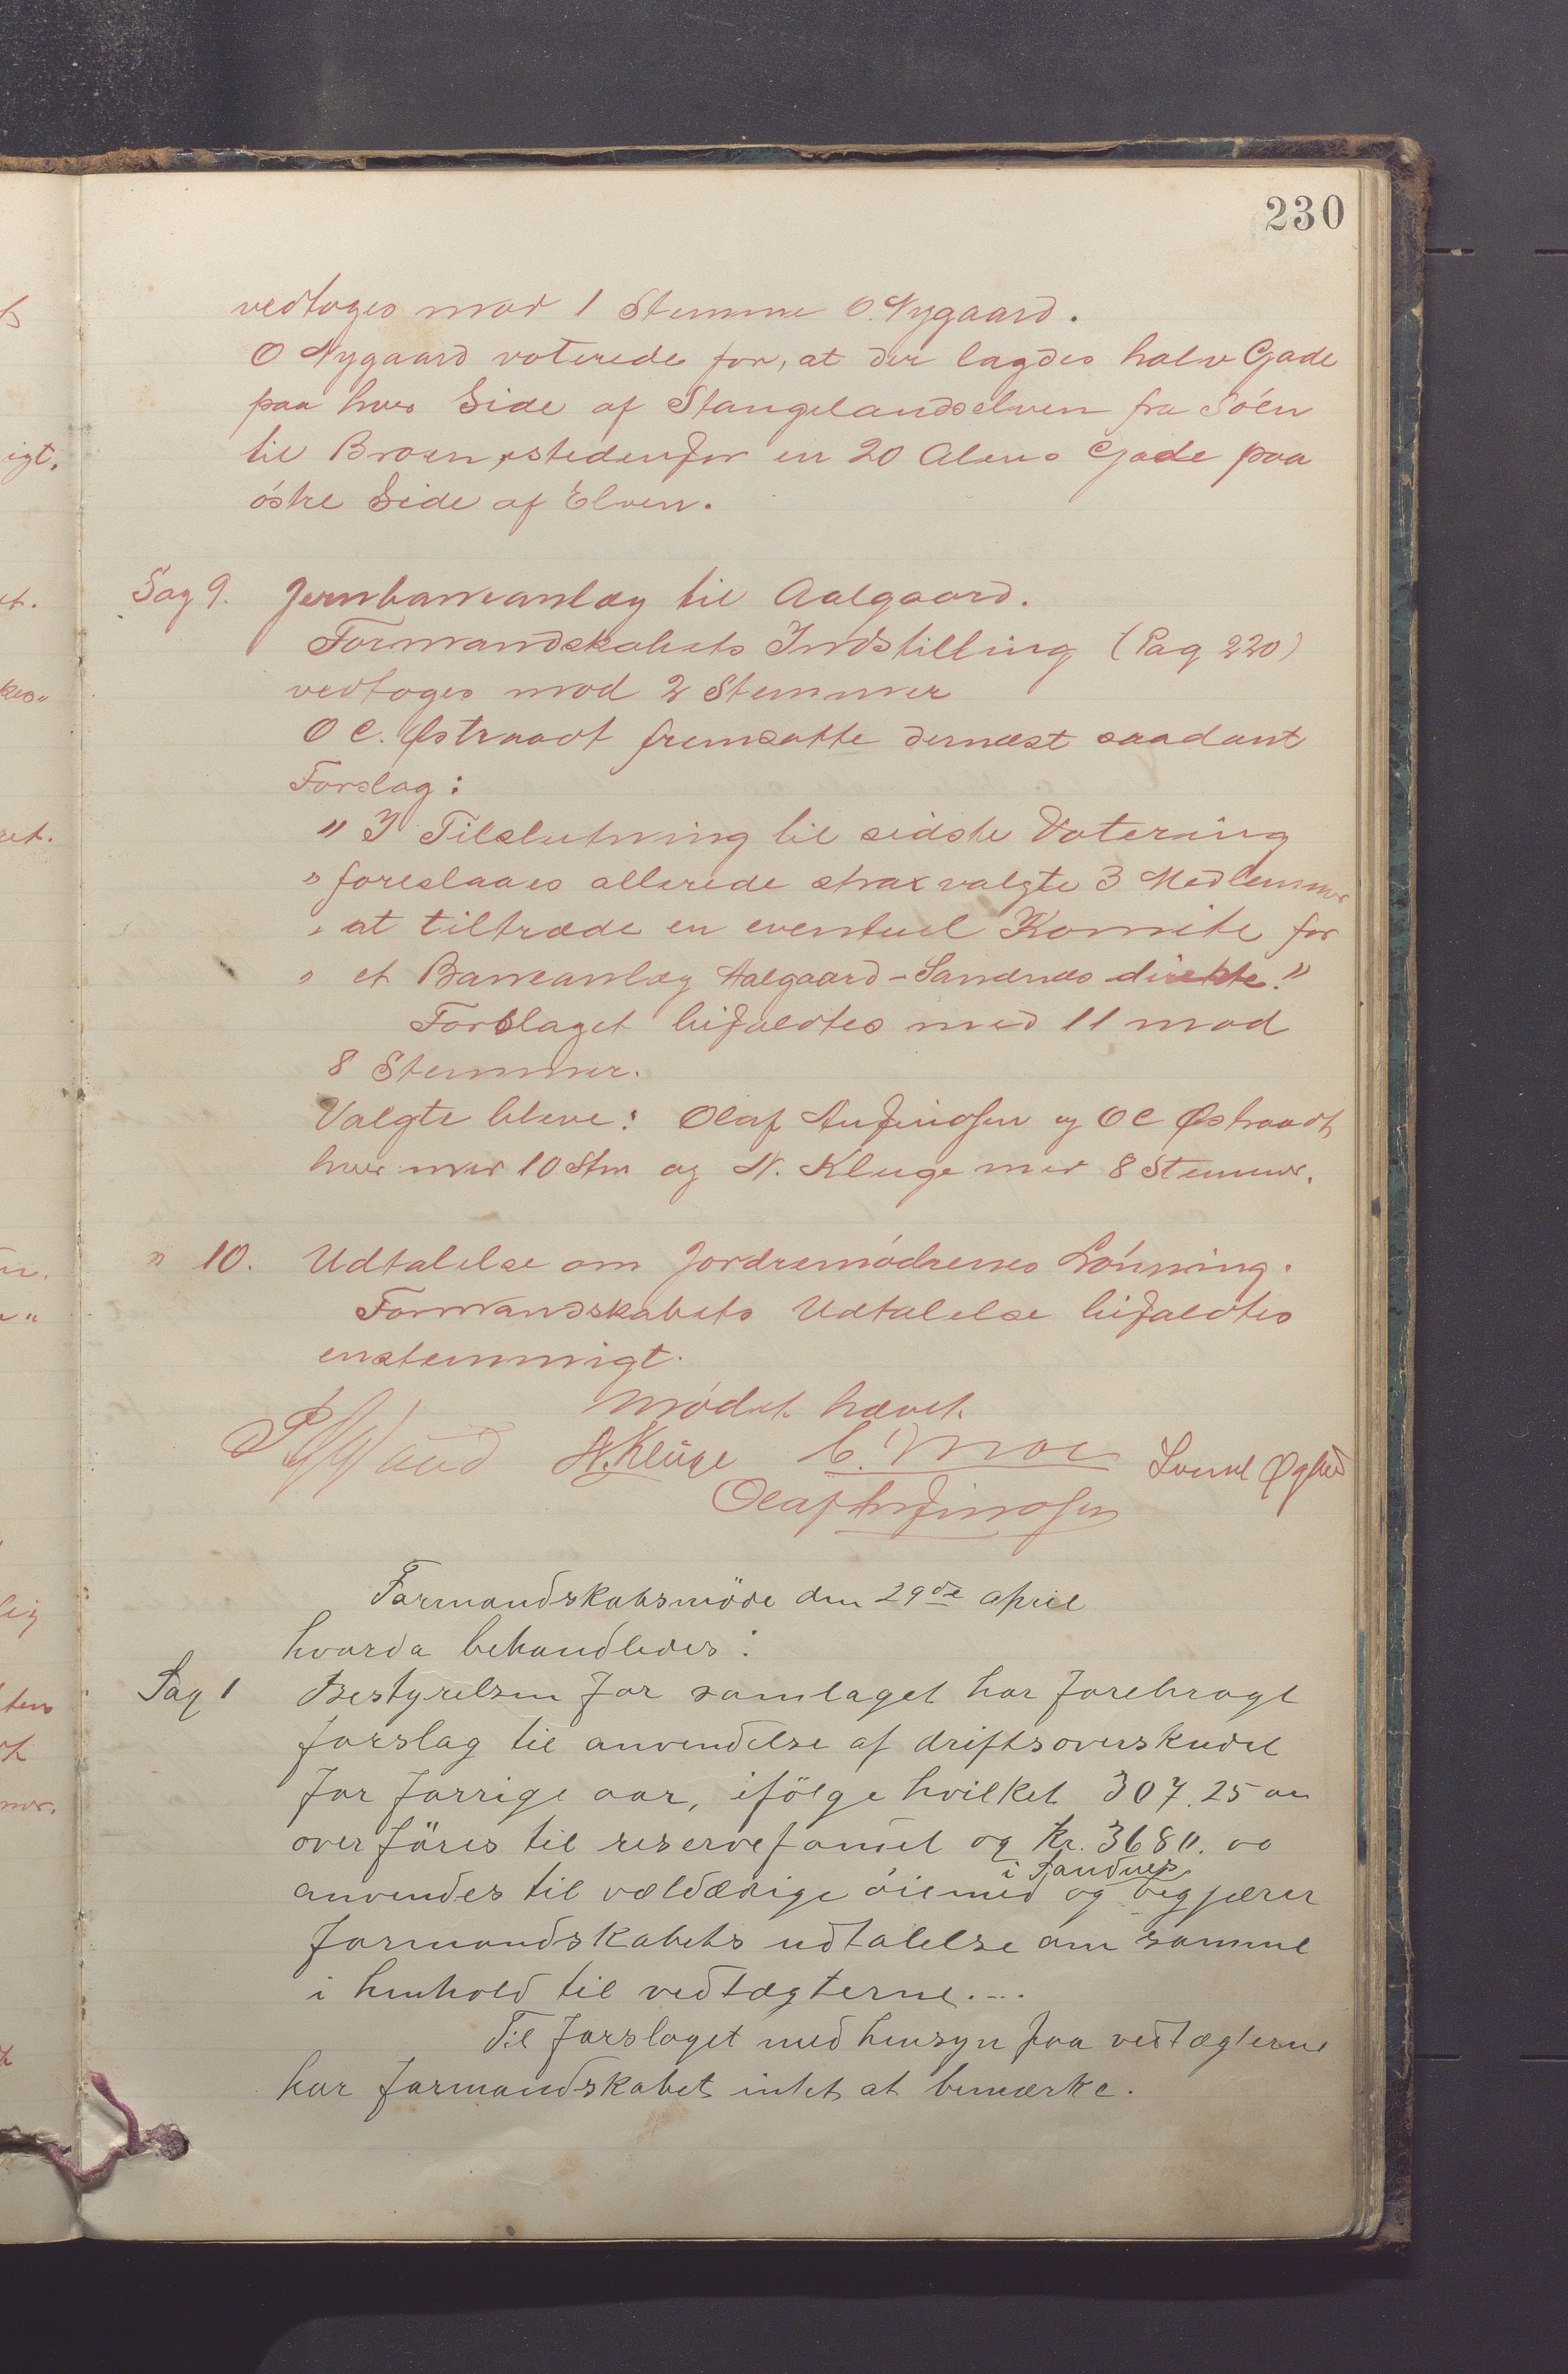 230
vedtoges mod 1 Stemme O. Nygaard.
O Nygaard voterede for, at der lagdes halv Gade
paa hver Side af Stangelandselven fra Söen
til Broen, istedenfor en 20 Alens Gade paa
östre Side af Elven.
Sag 9. Jernbaneanlæg til Aalgaard.
Formandskabets Indstilling (Pag 220)
vedtoges mod 2 Stemmer
O C. Østraadt fremsatte dernæst saadant
Forslag:
" I Tilslutning til sidste Votering
" foreslaaes allerede strax valgte 3 Medlemmer
" at tiltræde en eventuel Komite for
" et Baneanlæg Aalgaard-Sandnæs direkte."
Forslaget bifaldtes med 11 mod
8 Stemmer.
Valgte bleve: Olaf Anfindsen og O C Østraadt
hver med 10 Stm og N. Kluge med 8 Stemmer.
" 10. Udtalelse om Jordremödrenes Lönning.
Formandskabets Udtalelse bifaldtes
enstemmigt.
Mødet hævet.
N. Kluge C. Moe
Olaf Anfindsen
Formandskabsmöde den 29de april
hvorda behandledes:
Sag 1 Bestyrelsen for samlaget har forebragt
forslag til anvendelse af driftsoverskudet
for forrige aar, ifölge hvilket 307.25
overföres til reservefondet og kr. 3680.00
i Sandnes
anvendes til veldædige öiemed og begjærer
formandskabets udtalelse om samme
i henhold til vedtægterne.--
Til forslaget med hensyn paa vedtægterne
har formandskabet intet at bemærke.